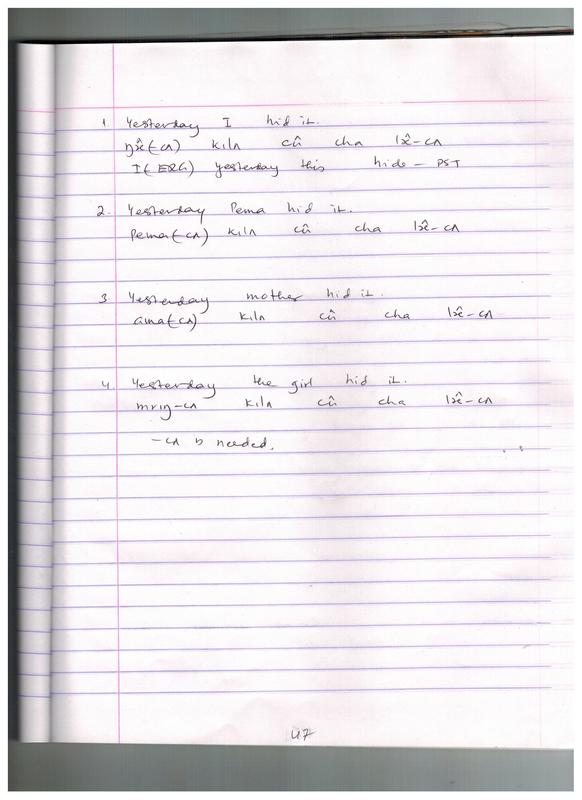 1. Yesterday I hid it.
ŋæ̂(-cʌ) kilʌ cû cha læ̂-cʌ
I(ERG) yesterday this hide - PST
2. Yesterday Pema hid it.
Pema(-cʌ) kilʌ cû cha læ̂-cʌ
3. Yesterday mother hid it.
ama(-cʌ) kilʌ cû cha læ̂-cʌ
4. Yesterday the girl hid it.
mrıŋ-cʌ kilʌ cû cha læ̂-cʌ
-cʌ is needed.
47